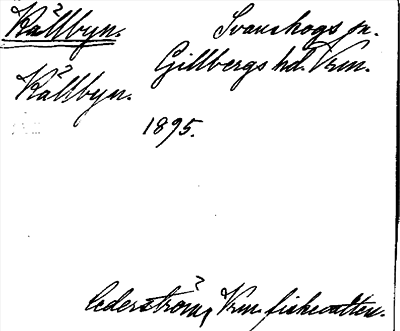 Källbyn. Svanskogs sn.
Gillbergs hd. Vrm.
Källbyn.
1895.
Cederström, Vrm. fiskevatten.